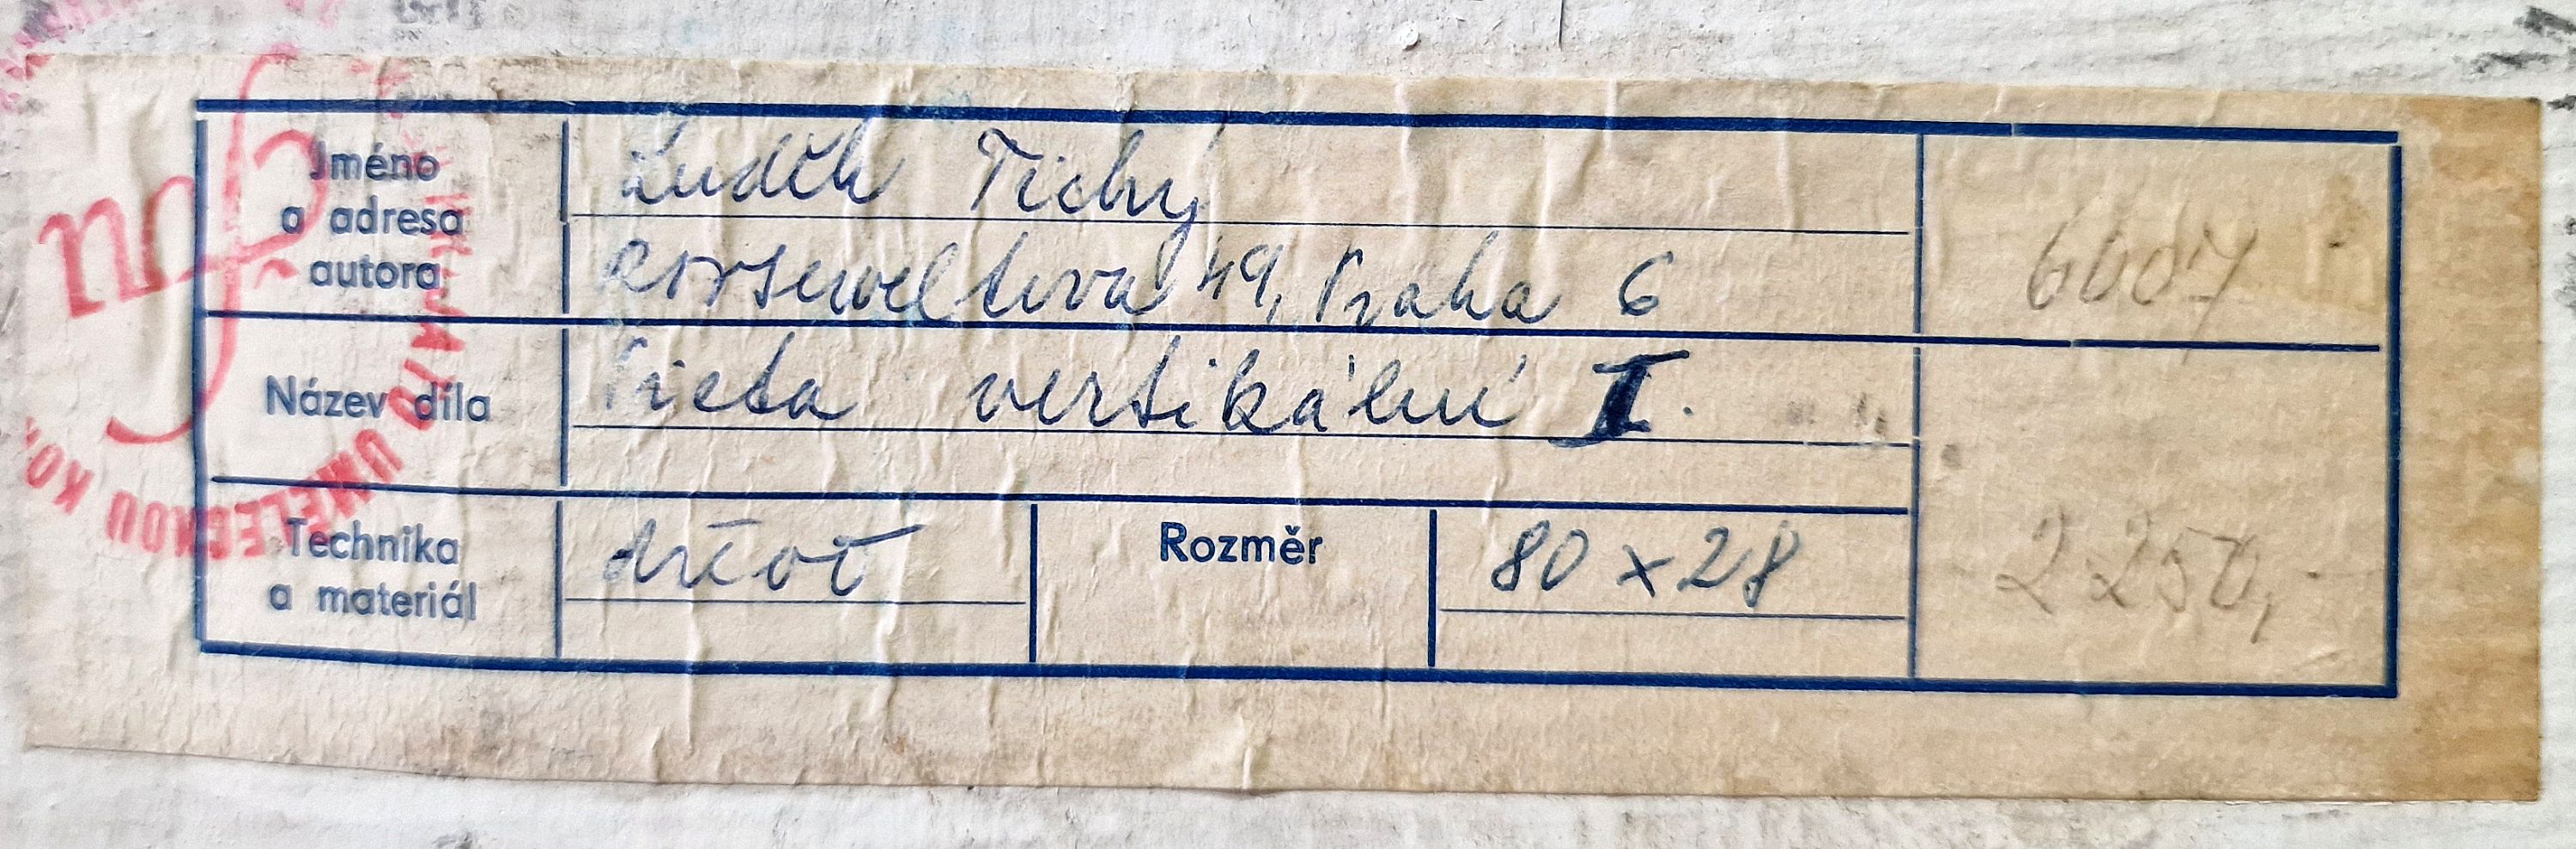 Jméno
a adresa
autora
Luděk Tichý
Rooseweltova 49, Praha 6
Název díla
Pieta vertikální I.
Technika
a materiál
dřevo
Rozměr
80 x 28
2 250,-
UMĚLECKOU KO